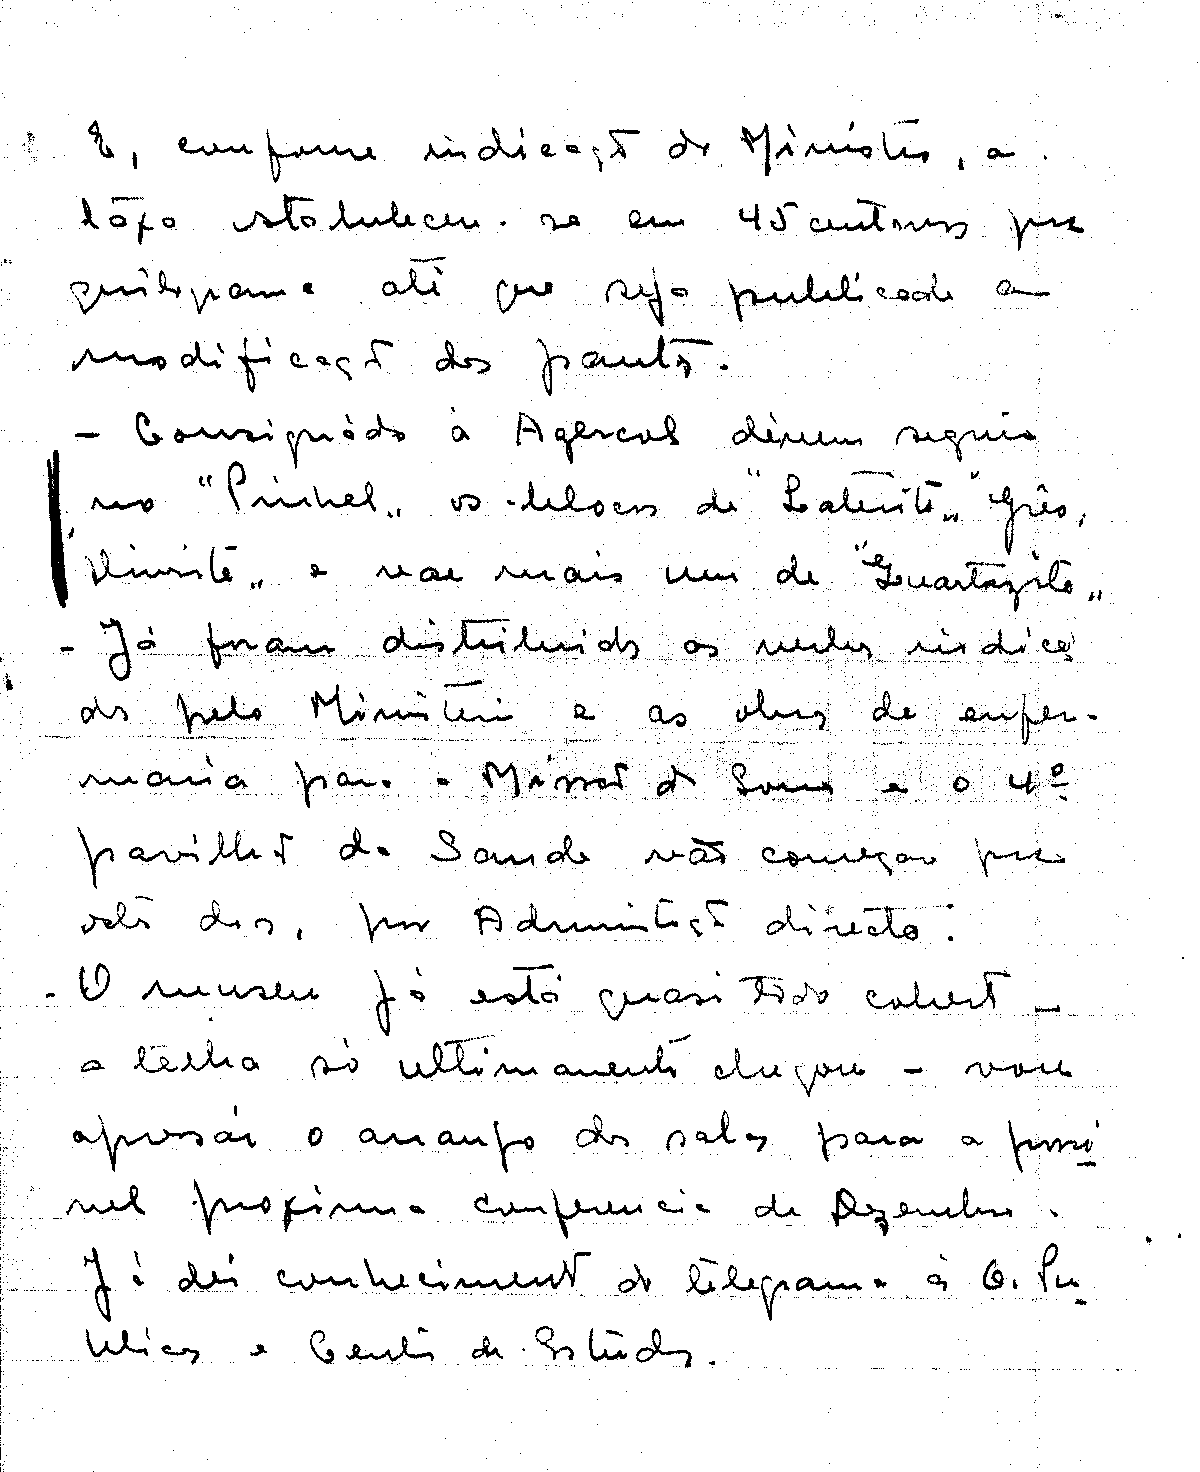 E, conforme indicação do Ministro, a
táxa estabeleceu-se em 45 centavos por
quilograma até que seja publicada a
modificação das pautas.
- Consignádo à Agercol dévem seguir
no "Pinhel" os blocos de "Laterite" "Grês,
e vae mais um de "Quartzite"
- Já foram distribuidas as verbas indica
das pelo Ministerio e as obras de enfer-
maria para a Missão do e o 4º
pavilhão da Saude vão começar por
estes dias, por Administração directa.
- O museu já está quasi todo coberto -
a telha só ultimamente chegou - vou
apressar o arranjo das salas para a possi
vel proxima conferencia de Dezembro.
Já dei conhecimento do telegrama ás O. Pu-
blicas e Centro de Estudos.